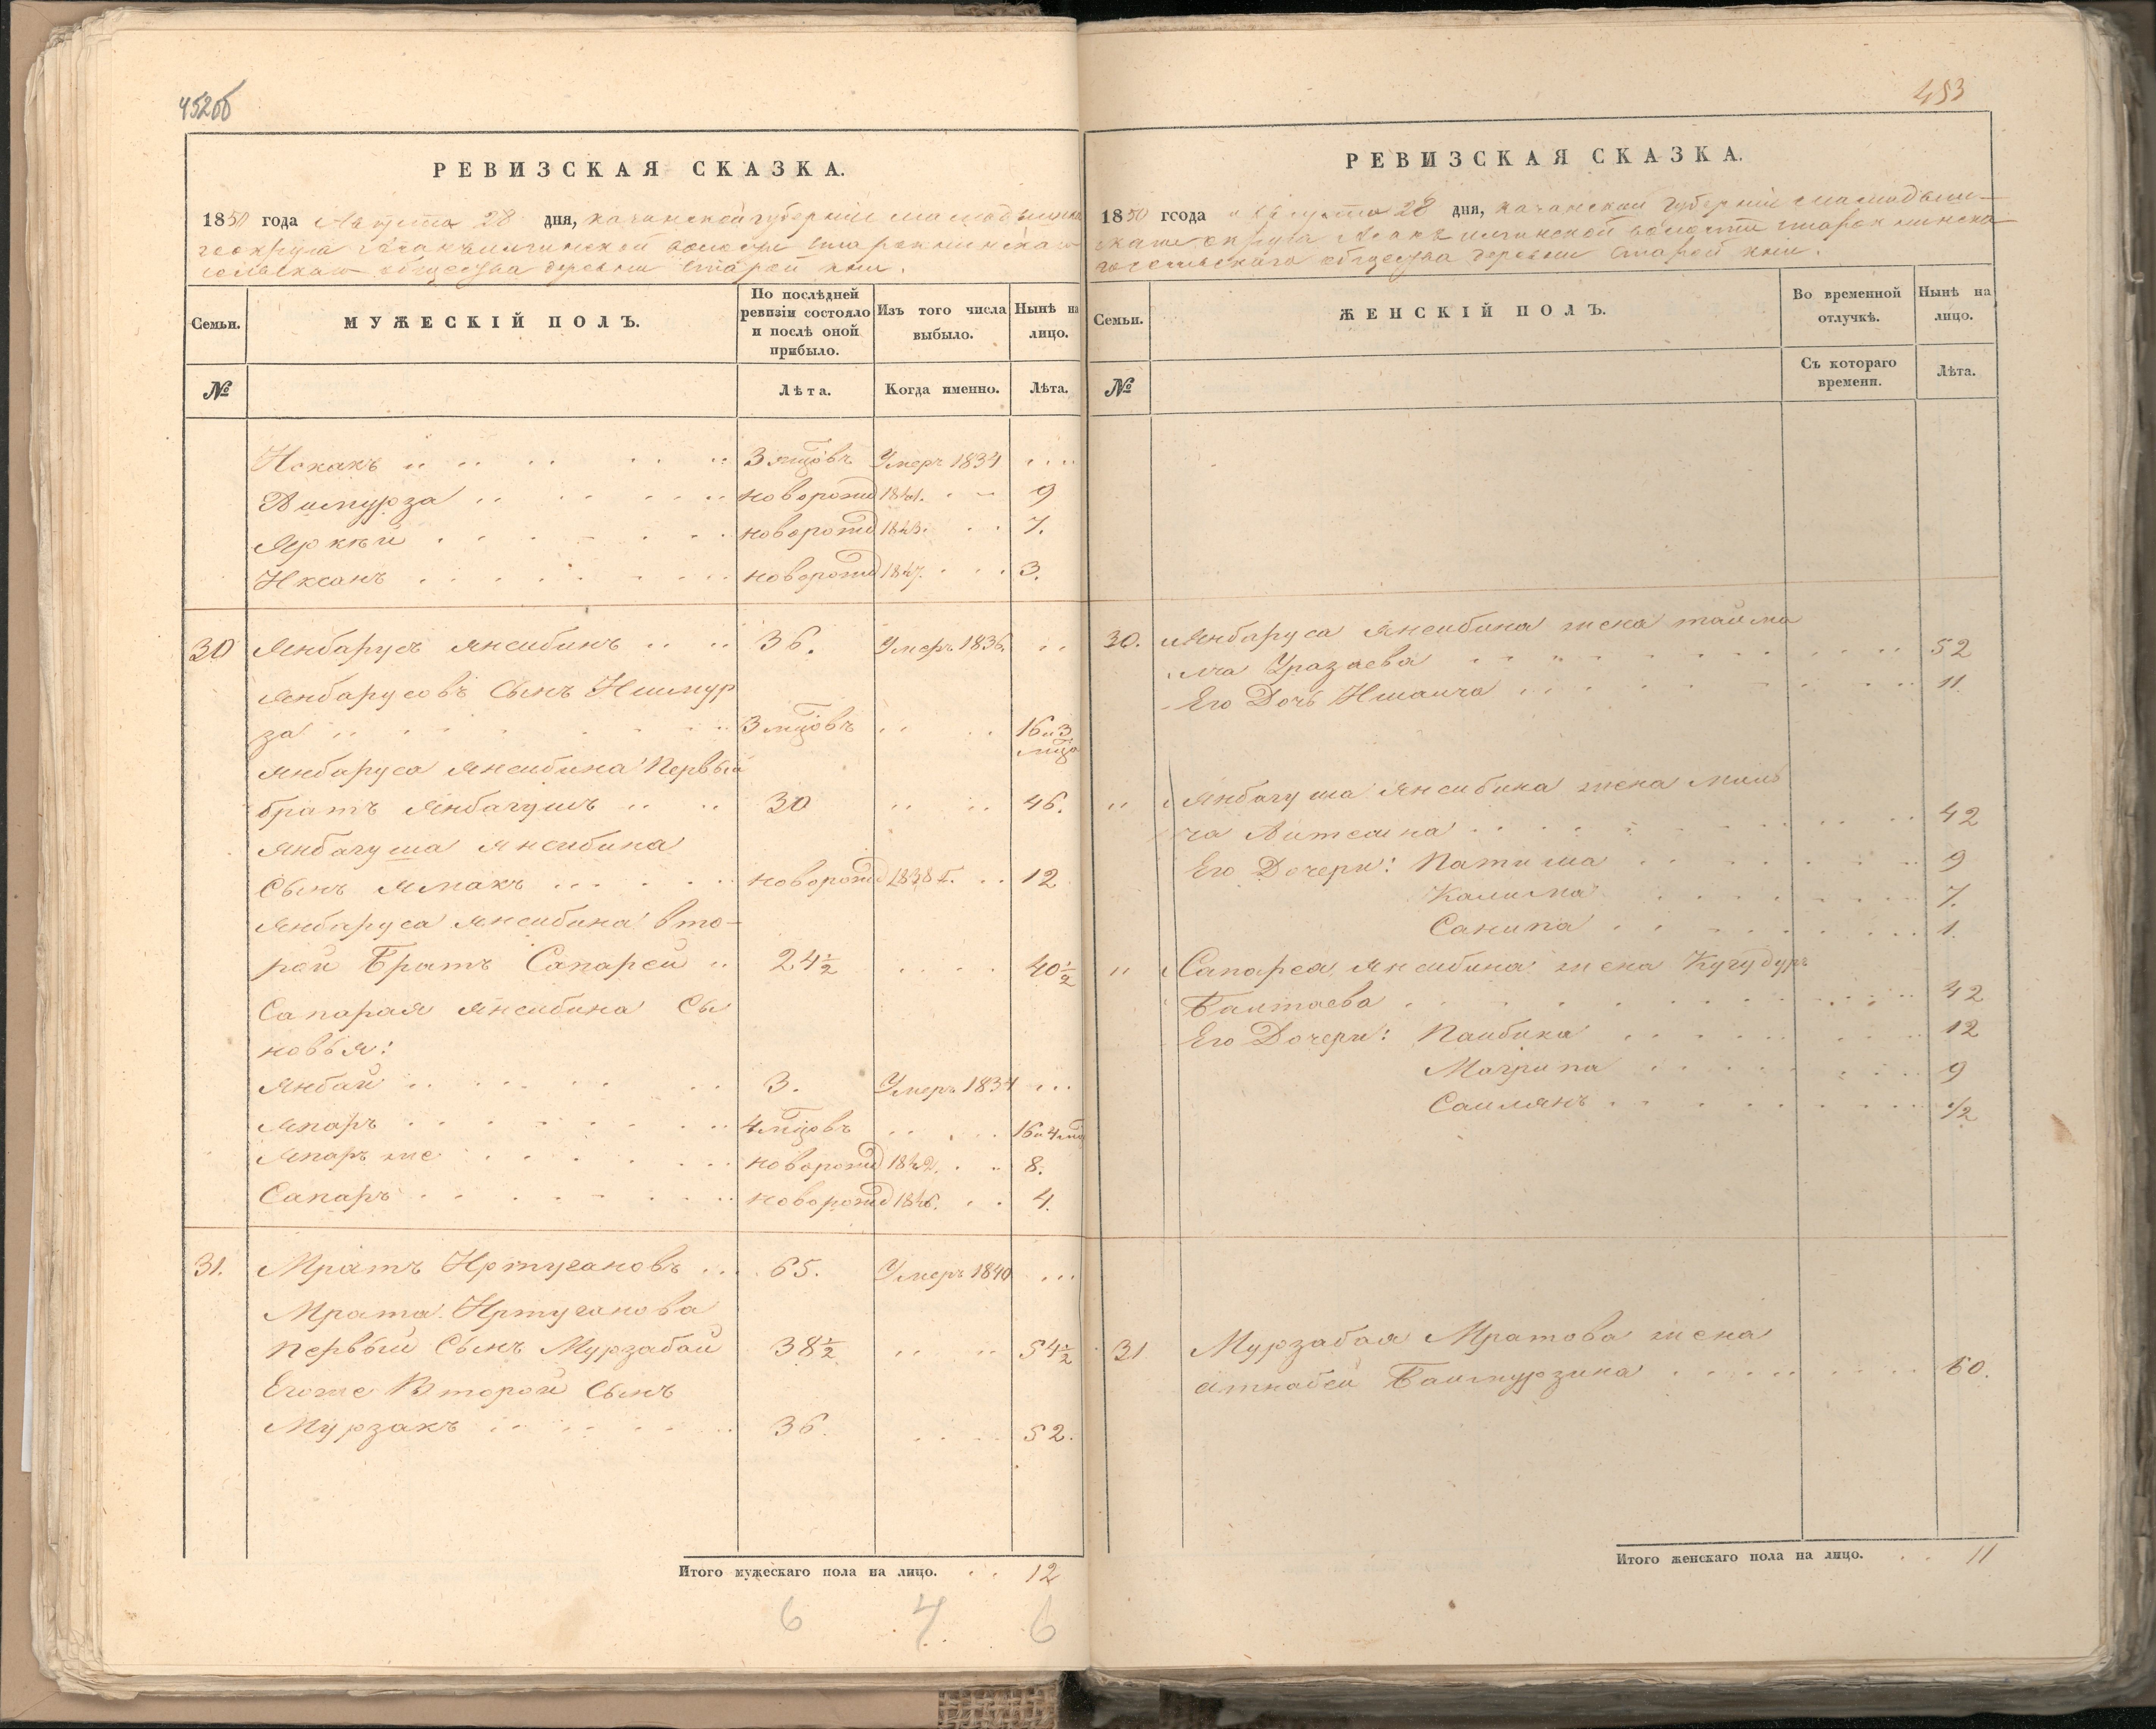 452об
РЕВИЗСКАЯ СКАЗКА.
1850 года Августа 28 дня, казанской губерніи мамадышска
го округа волости
сельскаго общества деревни Старой кни.
Семьи. МУЖЕСКІЙ ПОЛЪ. По послѣдней ревизіи состояло и послѣ оной прибыло. Изъ того числа выбыло. Нынѣ на лицо.
№ Лѣта. Когда именно. Лѣта.
Искакъ 3 мцовъ Умеръ 1834
Аимурза новорожд 1841. 9
новорожд 1843. 7.
Иксанъ новорожд 1847. 3.
30 Янбарусъ Янсибинъ 36. Умеръ 1836.
Янбарусовъ Сынъ Ишмур
за 3 мцовъ 16 и 3 мца
Янбаруса Янсибина Первый
братъ Янбагушъ 30 46.
Янбагуша Янсибина
Сынъ Ямакъ новорожд 1838 г. 12
Янбаруса Янсибина вто-
рой Братъ Сапарей 24½ 40½
Сапарая Янсибина Сы
новья:
Янбай 3. Умеръ 1834
Япаръ 4 мцовъ 16 и 4 мц
Япаръ же новорожд 1842. 8.
Сапаръ новорожд 1846. 4.
31. Мратъ Иртугановъ 65. Умеръ 1840
Мрата Иртуганова
первый Сынъ Мурзабай 38½ 54½
Егоже Второй Сынъ
Мурзакъ 36. 52.
Итого мужескаго пола на лицо. 12
6 4 6
453
РЕВИЗСКАЯ СКАЗКА.
1850 года Августа 28 дня, казанской губерніи мамадыш-
скаго округа волости
сельскаго общества деревни Старой кни.
Семьи. ЖЕНСКІЙ ПОЛЪ. Во временной отлучкѣ. Нынѣ на лицо.
№ Съ котораго времени. Лѣта.
30. Янбаруса Янсибина жена
Уразаева 52
Его Дочь 11.
" Янбагуша Янсибина жена
42
Его Дочери: Патиша 9
Калима 7.
Санипа 1.
" Сапарея Янсибина жена Кугудур
Баитаева 42
Его Дочери: Паибика 12
Магрипа 9
Саилянъ ½
31 Мурзабая Мратова жена
Баимурзина 60.
Итого женскаго пола на лицо. 11